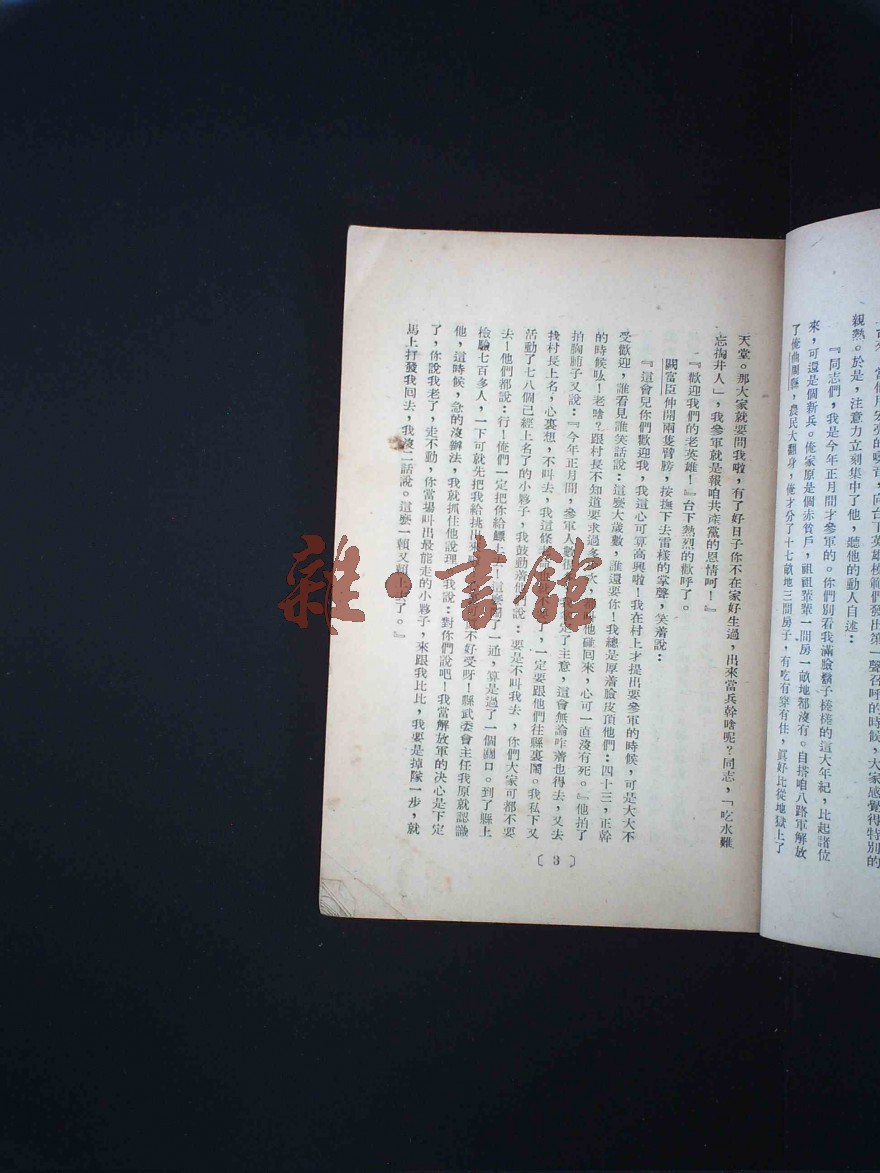 親熱。於是，注意力立刻集中了他，聽他的動人自述：
『同志們，我是今年正月間才參軍的。你們別看我滿臉鬍子棬棬的這大年紀，比起諸位
來，可還是個新兵。俺家原是個赤貧戶，祖祖輩輩一間房一畝地都沒有。自搭咱八路軍解放
了俺曲陽縣，農民大翻身，俺才分了十七畝地三間房子，有吃有穿有住，眞好比從地獄上了
天堂。那大家就要問我啦，有了好日子你不在家好生過，出來當兵幹啥呢？同志，「吃水難
忘掏井人」，我參軍就是報咱共產黨的恩情呵！』
『歡迎我們的老英雄！』台下熱烈的歡呼了。
閻富臣伸開兩隻臂膀，按撫下去雷樣的掌聲，笑着說：
『這會兒你們歡迎我，我這心可算高興啦！我在村上才提出要參軍的時候，可是大大不
受歡迎，誰看見誰笑話說：這麼大歲數，誰還要你！我總是厚着臉皮頂他們：四十三，正幹
的時候吆！老啥？跟村長不知道要求過多 次， 他碰回來，心可一直沒有死。』他拍了
拍胸脯子又說：『今年正月間，參軍人數 定了主意，這會無論咋着也得去，又去
找村長上名，心裏想，不叫去，我這條 了，一定要跟他們往縣裏鬧。我私下又
活動了七八個已經上名了的小夥子，我鼓動着他們說：要是不叫我去，你們大家可都不要
去！他們都說：行！俺們一定把你給 上去！這麼鬧了一通，算是過了一個關口。到了縣上
檢驗七百多人，一下可就先把我給挑出來 不好受呀！縣武委會主任我原就認識
他，這時候，急的沒辦法，我就抓住他說理 我說：對你們說吧！我當解放軍的决心是下定
了，你說我老了，走不動，你當場叫出最能走的小夥子，來跟我比比，我要是掉隊一步，就
馬上打發我回去，我沒二話說。這麼一賴又賴上去了。』
〔3〕
雜·書館